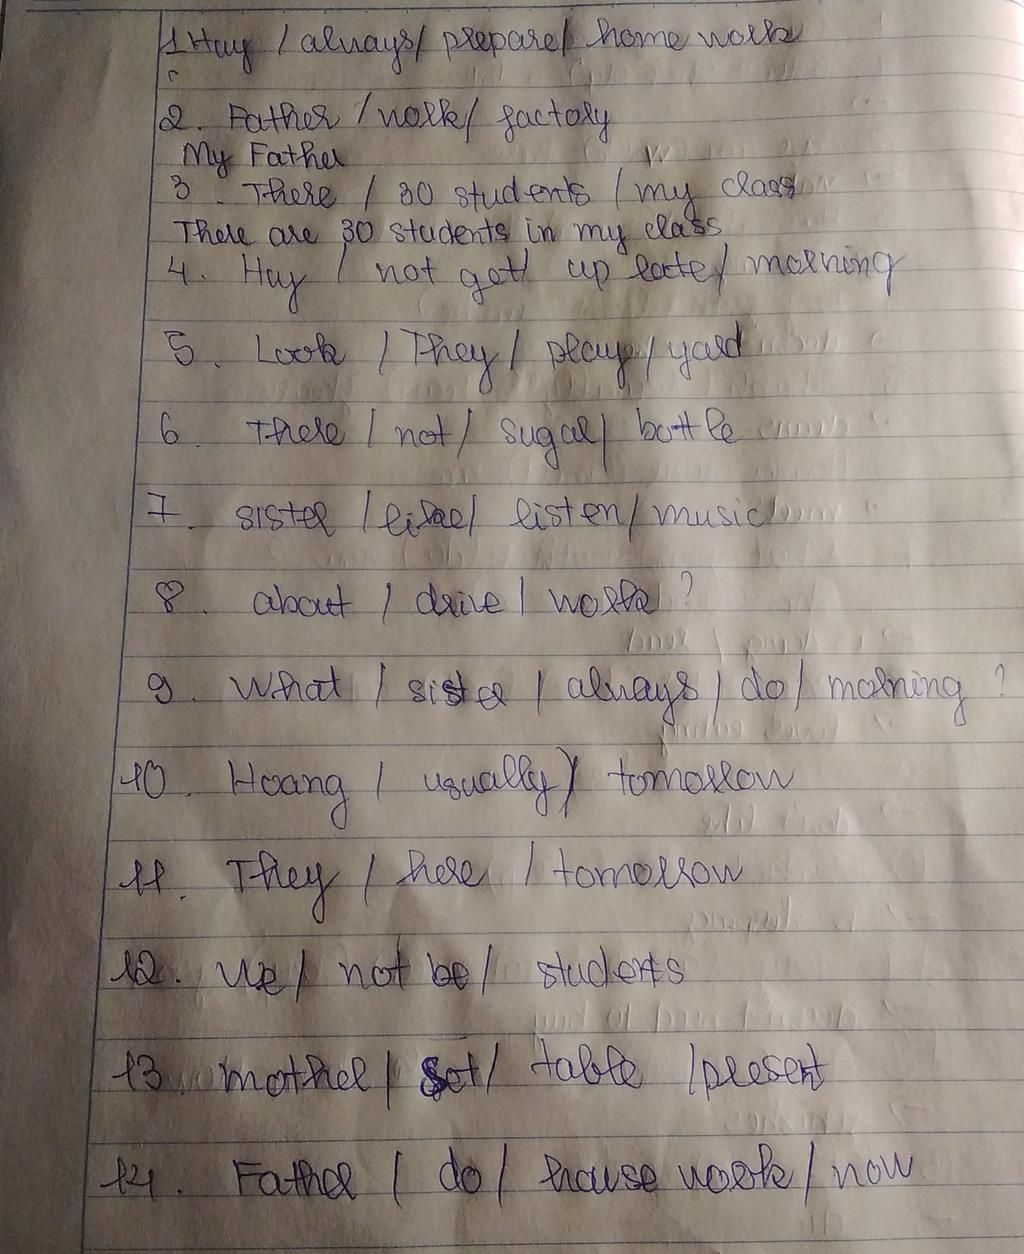 1 Huy / always / prepare / home work
2. Father / work / factory
My Father
3. There / 30 students / my class
There are 30 students in my class
4. Huy / not get up late / morning
5. Look / They / play / yard
6. There / not / sugar / bottle
7. sister / like / listen / music
8. about / drive / work ?
9. What / sister / always / do / morning ?
10. Hoang / usually / tomorrow
11. They / here / tomorrow
12. We / not be / students
13. mother / set / table / present
14. Father / do / house work / now